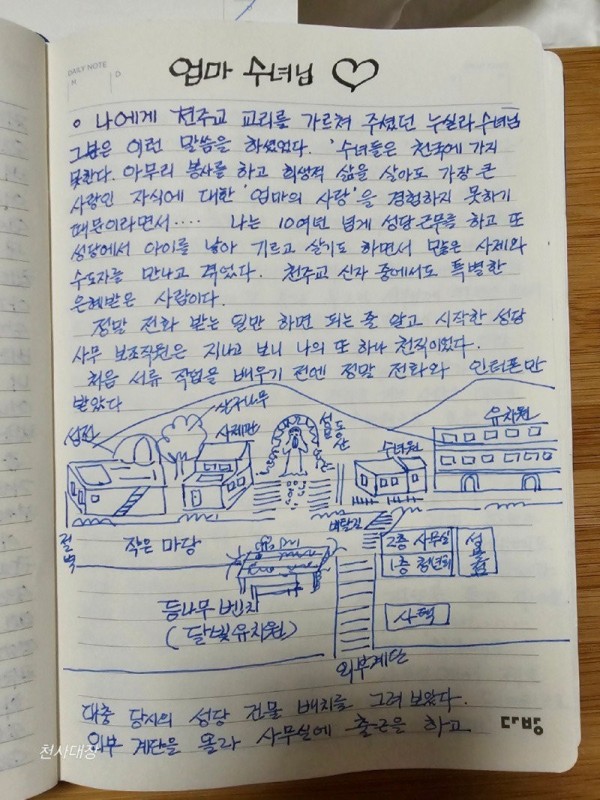 DAILY NOTE
M D
엄마 수녀님 ♡
o 나에게 천주교 교리를 가르쳐 주셨던 누실라 수녀님
그분은 이런 말씀을 하셨었다. '수녀들은 천국에 가지
못한다. 아무리 봉사를 하고 희생적 삶을 살아도 가장 큰
사랑인 자식에 대한 '엄마의 사랑'을 경험하지 못하기
때문이라면서.... 나는 10여년 넘게 성당근무를 하고 또
성당에서 아이를 낳아 기르고 살기도 하면서 많은 사제와
수도자를 만나고 겪었다. 천주교 신자 중에서도 특별한
은혜받은 사람이다.
정말 전화 받는 일만 하면 되는 줄 알고 시작한 성당
사무 보조직원은 지나고 보니 나의 또 하나 천직이었다.
처음 서류 작업을 배우기 전엔 정말 전화와 인터폰만
받았다
성전
사제관
성모동산
수녀원
유치원
절벽
작은 마당
비탈길
2층 사무실
1층 청년회
성물방
등나무 벤치
(달빛유치원)
사택
외부계단
대충 당시의 성당 건물 배치를 그려 보았다.
외부 계단을 올라 사무실에 출근을 하고
다방
천사대장